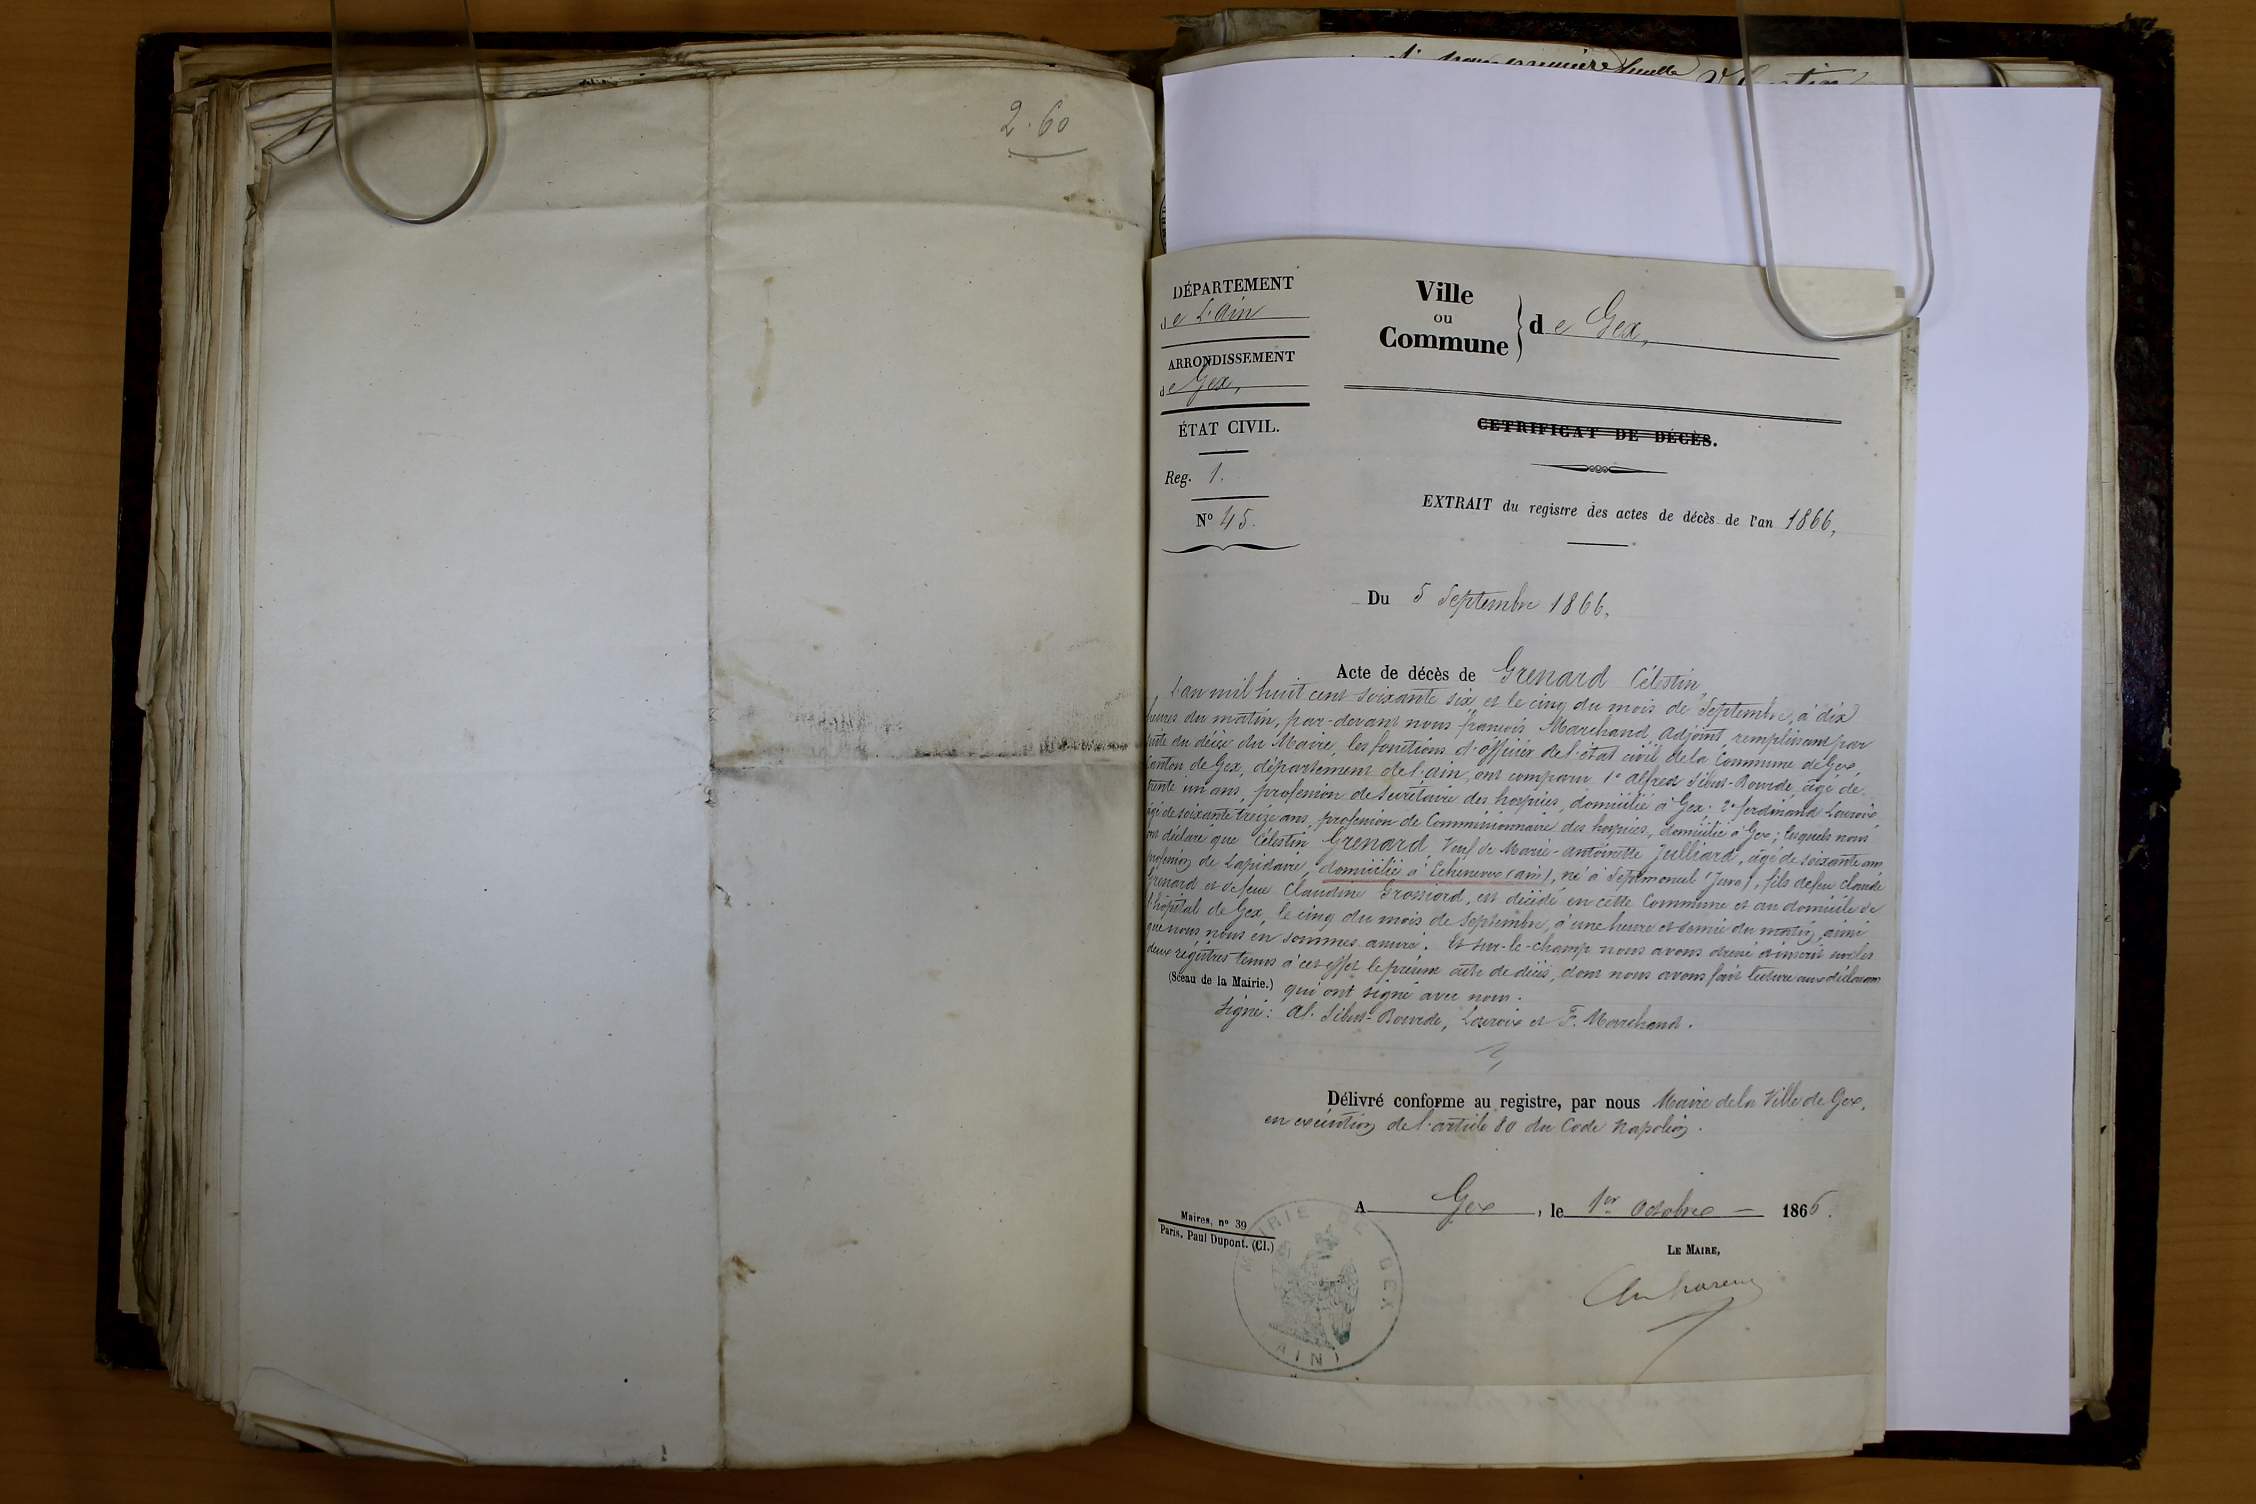 2.60
DÉPARTEMENT
de L'ain
ARRONDISSEMENT
de Gex,
ÉTAT CIVIL.
Reg. 1.
N° 45.
Ville
ou
Commune
de Gex,
CETRIFICAT DE DÉCÈS.
EXTRAIT du registre des actes de décès de l'an 1866,
Du 5 Septembre 1866,
Acte de décès de Grenard Célestin
L'an mil huit cent soixante six, et le cinq du mois de Septembre, à dix
heures du matin, par-devant nous françois Marchand Adjoint, remplissant par
suite du décès du Maire, les fonctions d'officier de l'état civil de la Commune de Gex,
Canton de Gex, département de l'ain, ont comparu 1° Alfred Sibus-Bourde, âgé de
trente un ans, profession de Secrétaire des hospices, domicilié à Gex; 2° ferdinand Lacroix
âgé de soixante treize ans, profession de Commissionnaire des hospices, domicilié à Gex; lesquels nous
ont déclaré que Célestin Grenard Veuf de Marie-Antoinette Julliard, âgé de soixante ans
profession de Lapidaire, domicilié à Echenevex (ain), né à Septmoncel (Jura), fils de feu Claude
Grenard et de feue Claudine Grossiord, est décédé en cette Commune et au domicile de
l'hôpital de Gex, le cinq du mois de Septembre, à une heure et demie du matin, ainsi
que nous nous en sommes assuré. Et sur-le-champ nous avons dressé et inscrit sur les
deux registres tenus à cet effet le présent acte de décès, dont nous avons fait lecture aux déclarans
(Sceau de la Mairie.) qui ont signé avec nous.
Signé: Al. Sibus-Bourde, Lacroix et F. Marchand.
Délivré conforme au registre, par nous Maire de la Ville de Gex,
en exécution de l'article 80 du Code Napoléon.
A Gex, le 1er Octobre 1866.
Maires, n° 39
Paris, Paul Dupont. (Cl.)
LE MAIRE,
MAIRIE DE GEX
(AIN)